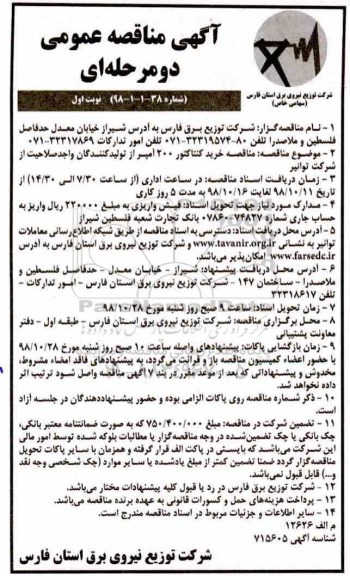 آگهی مناقصه عمومی
دو مرحله‌ای
شرکت توزیع نیروی برق استان فارس
(سهامی خاص)
(شماره ۳۸-۱-۱-۹۸) نوبت اول
۱ - نام مناقصه‌گزار: شرکت توزیع برق فارس به آدرس شیراز خیابان معدل حدفاصل
فلسطین و ملاصدرا تلفن ۸۰-۳۲۳۱۹۵۷۴-۰۷۱ تلفن امور تدارکات ۳۲۳۱۷۸۶۹-۰۷۱
۲ - موضوع مناقصه: مناقصه خرید کنتاکتور ۲۰۰ آمپر از تولیدکنندگان واجدصلاحیت از
شرکت توانیر
۳ - زمان دریافت اسناد مناقصه: در ساعت اداری (از ساعت ۷/۳۰ الی ۱۴/۳۰) از
تاریخ ۹۸/۱۰/۱۱ لغایت ۹۸/۱۰/۱۶ به مدت ۵ روز کاری
۴ - مدارک مورد نیاز جهت تحویل اسناد: فیش واریزی به مبلغ ۲۲۰۰۰۰ ریال واریز به
حساب جاری شماره ۰۷۸۶۰۰۷۴۸۲۷ بانک تجارت شعبه فلسطین شیراز
۵ - آدرس محل دریافت اسناد: دسترسی به اسناد مناقصه از طریق شبکه اطلاع‌رسانی معاملات
توانیر به نشانی www.tavanir.org.ir و شرکت توزیع نیروی برق استان فارس به آدرس
www.farsedc.ir امکان‌پذیر می‌باشد.
۶ - آدرس محل دریافت پیشنهاد: شیراز - خیابان معدل - حدفاصل فلسطین و
ملاصدرا - ساختمان ۱۴۷ - شرکت توزیع برق استان فارس - امور تدارکات -
تلفن ۳۲۳۱۸۶۱۷
۷ - زمان تحویل اسناد: ساعت ۹ صبح روز شنبه مورخ ۹۸/۱۰/۲۸
۸ - محل برگزاری مناقصه: شرکت توزیع نیروی برق استان فارس - طبقه اول - دفتر
معاونت پشتیبانی
۹ - زمان بازگشایی پاکات: پیشنهادهای واصله ساعت ۱۰ صبح روز شنبه مورخ ۹۸/۱۰/۲۸
با حضور اعضاء کمیسیون مناقصه باز و قرائت می‌گردد، به پیشنهادهای فاقد امضاء مشروط،
مخدوش و پیشنهاداتی که بعد از موعد مقرر در بند ۷ آگهی مناقصه واصل شود ترتیب اثر
داده نخواهد شد.
۱۰ - ذکر شماره مناقصه روی پاکات الزامی بوده و حضور پیشنهاددهندگان در جلسه آزاد
است.
۱۱ - تضمین شرکت در مناقصه: مبلغ ۷۵۰/۴۰۰/۰۰۰ که به صورت ضمانتنامه معتبر بانکی،
چک بانکی یا چک تضمین‌شده در وجه مناقصه‌گزار یا مطالبات بلوکه شده توسط امور مالی
این شرکت می‌باشد که بایستی در پاکت الف قرار گرفته و همزمان با سایر پاکات تحویل
مناقصه‌گزار گردد ضمنا تضمین کمتر از مبلغ یادشده یا سایر موارد (چک شخصی وجه نقد
و...) قابل قبول نمی‌باشد.
۱۲ - شرکت توزیع برق فارس در رد یا قبول کلیه پیشنهادات مختار می‌باشد.
۱۳ - پرداخت هزینه‌های حمل و کسورات قانونی به عهده برنده مناقصه می‌باشد.
۱۴ - سایر اطلاعات و جزئیات مربوط در اسناد مناقصه مندرج است.
م الف ۱۲۶۲۶
شناسه آگهی ۷۱۵۶۰۵
شرکت توزیع نیروی برق استان فارس